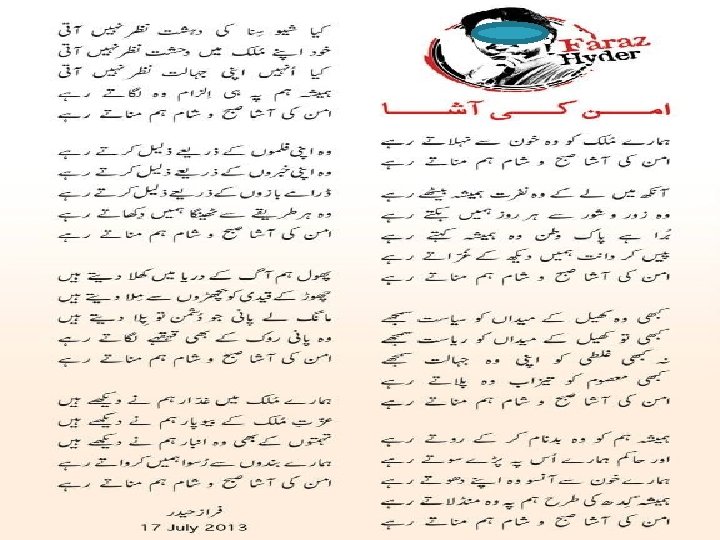 Faraz
Hyder
امن کی آشا
ہمارے مُلک کو وہ خون سے نہلاتے رہے
امن کی آشا صبح و شام ہم مناتے رہے
آنکھ میں لے کے وہ نفرت ہمیشہ بیٹھے رہے
وہ زور و شور سے ہر روز ہمیں بکتے رہے
بُرا ہے پاک وطن وہ ہمیشہ کہتے رہے
پیس کر دانت ہمیں دیکھ کے غُراتے رہے
امن کی آشا صبح و شام ہم مناتے رہے
کبھی وہ کھیل کے میداں کو سیاست سمجھے
کبھی تو کھیل کے میداں کو ریاست سمجھے
نہ کبھی غلطی کو اپنی وہ جہالت سمجھے
کبھی معصوم کو تیزاب وہ پلاتے رہے
امن کی آشا صبح و شام ہم مناتے رہے
ہمیشہ ہم کو وہ بدنام کر کے روتے رہے
اور حاکم ہمارے اُس پہ پڑے سوتے رہے
ہمارے خون سے آنسو وہ اپنے دھوتے رہے
ہمیشہ گِدھ کی طرح ہم پہ وہ منڈلاتے رہے
امن کی آشا صبح و شام ہم مناتے رہے
کیا شیو سِنا کی دہشت نظر نہیں آتی
خود اپنے مُلک میں وحشت نظر نہیں آتی
کیا اُنہیں اپنی جہالت نظر نہیں آتی
ہمیشہ ہم پہ ہی اِلزام وہ لگاتے رہے
امن کی آشا صبح و شام ہم مناتے رہے
وہ اپنی فلموں کے ذریعے ذلیل کرتے رہے
وہ اپنی خبروں کے ذریعے ذلیل کرتے رہے
ڈرامے بازوں کے ذریعے ذلیل کرتے رہے
وہ ہر طریقے سے ٹھینگا ہمیں دکھاتے رہے
امن کی آشا صبح و شام ہم مناتے رہے
پھول ہم آگ کے دریا میں کھلا دیتے ہیں
چھوڑ کے قیدی کو بچھڑوں سے مِلا دیتے ہیں
مانگ لے پانی جو دُشمن تو پِلا دیتے ہیں
وہ پانی روک کے بھی قہقہے لگاتے رہے
امن کی آشا صبح و شام ہم مناتے رہے
ہمارے مُلک میں غدّار ہم نے دیکھے ہیں
عزّتِ مُلک کے بیوپار ہم نے دیکھے ہیں
تہمتوں کے بھی وہ انبار ہم نے دیکھے ہیں
ہمارے بندوں سے رُسوا ہمیں کرواتے رہے
امن کی آشا صبح و شام ہم مناتے رہے
فراز حیدر
17 July 2013